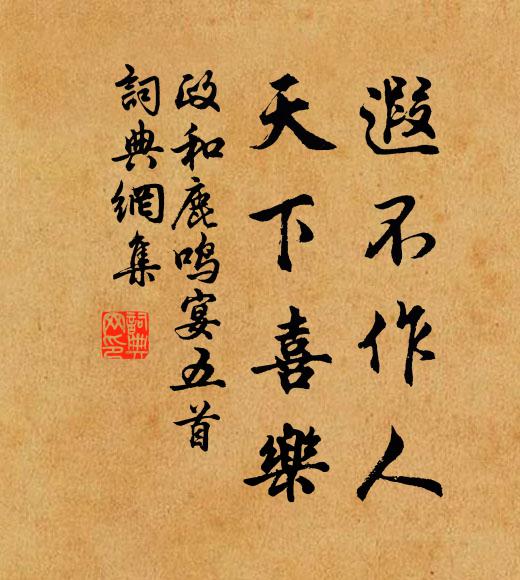 遐不作人
天下喜樂
政和鹿鳴宴五首
詞典網集
詞典網印